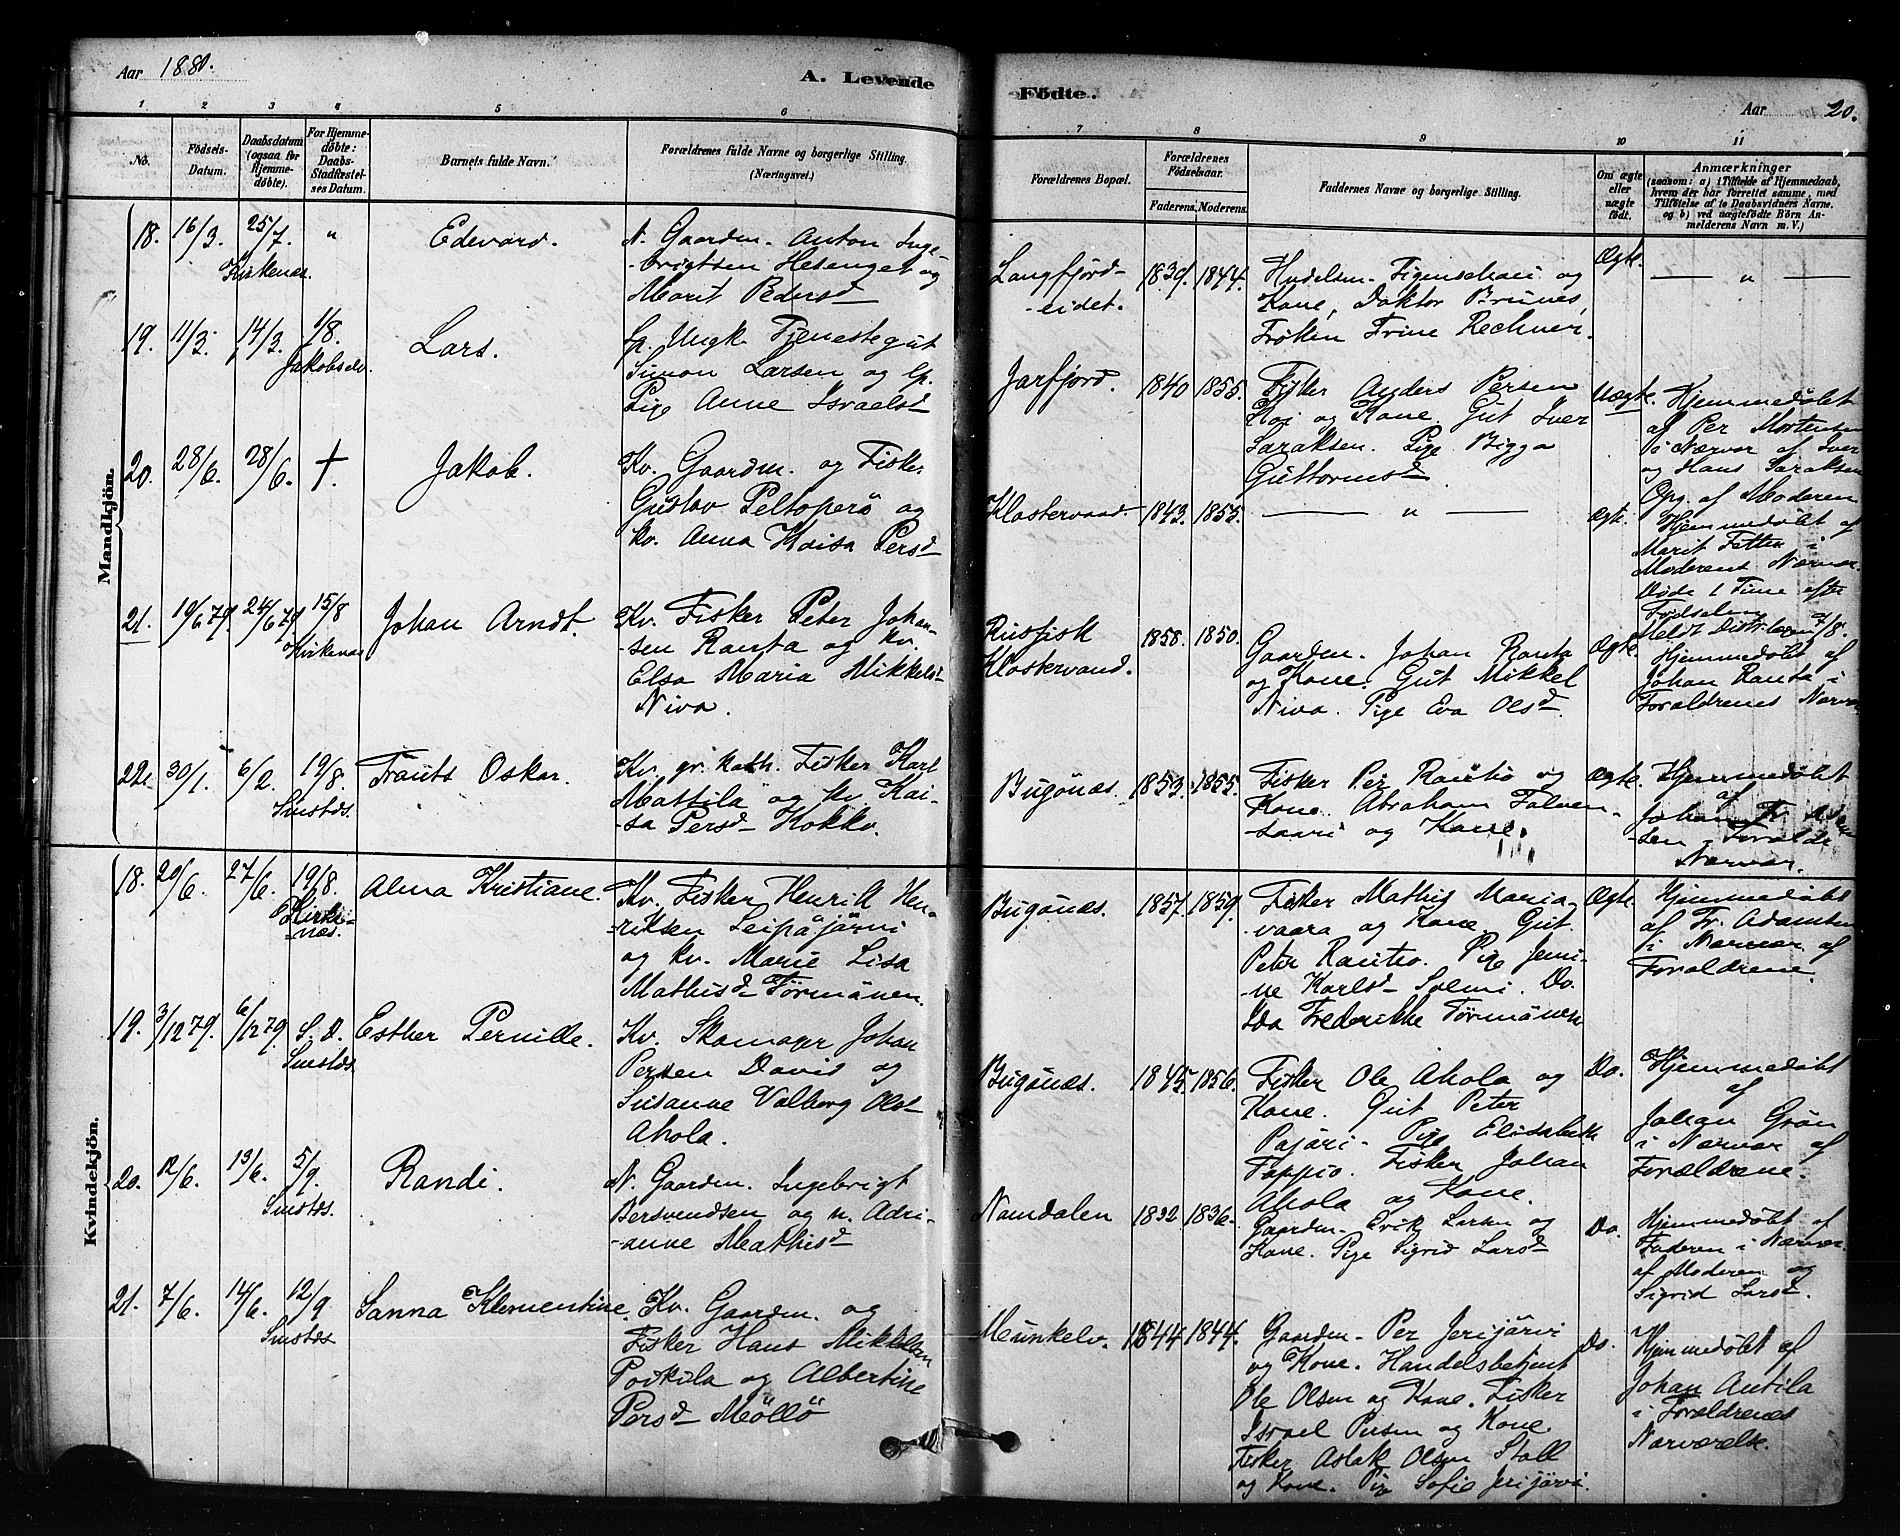 Aar 1880.
A. Levende
Födte.
Aar
20.
1 2 3 4 5 6
7 8 9 10 11
No.
Födsels-
Datum.
Daabsdatum
(ogsaa for
Hjemme-
döbte).
For Hjemme-
döbte:
Daabs-
Stadfæstel-
ses Datum.
Barnets fulde Navn.
Forældrenes fulde Navne og borgerlige Stilling.
(Næringsvei.)
Forældrenes Bopæl.
Forældrenes
Födselsaar.
Faderens. Moderens.
Faddernes Navne og borgerlige Stilling.
Om ægte
eller
uægte
födt.
Anmærkninger
(saasom: a) i Tilfælde af Hjemmedaab,
hvem der har forrettet samme, med
Tilföielse af to Daabsvidners Navne.
og b) ved uægtefödte Börn An-
melderens Navn m. V.)
Mandkjön.
18. 16/3. 25/7. " Edevard.
Kirkenæs.
N. Gaardm. Anton Inge-
-brigtsen Hesenget og
Marit Pedersd
Langfjord-
-eidet.
1839. 1844.
Kone, Doktor Brunes,
Frøken Trine Rechner.
Ægte.
— " —
19. 11/3. 14/3. 1/8. Lars.
Jakobselv.
lp. Ungk. Tjenestegut
Simon Larsen og lp.
Pige Anne Israelsd
Jarfjord. 1840 1855.
Fisker Anders Persen
og Kone. Gut Iver
Saraksen. Pige Bigga
Guttormsd.
Uægte.
Hjemmedøbt
af Per Mortensen
i Nærvær af Iver
og Hans Saraksen
Opg. af Moderen
20. 28/6. 28/6. †. Jakob.
Kv. Gaardm. og Fisker
Gustav Peltoperö og
kv. Anna Kaisa Persd
Klostervand. 1843. 1855. — " — Ægte.
Hjemmedøbt af
Marit Fetter i
Moderens Nærvær.
Døde 1 Time efter
Fødselen
21. 19/6 79. 24/6 79. 15/8 Johan Arndt.
Kirkenæs
Kv. Fisker Peter Johan-
-sen Ranta og kv.
Elsa Maria Mikkelsd
Niva.
Russisk
Klostervand.
1858. 1850.
Gaardm. Johan Ranta
og Kone. Gut Mikkel
Niva. Pige Eva Olsd.
Ægte.
Hjemmedøbt af
Johan Ranta i
Forældrenes Nærvær
22. 30/1. 6/2. 19/8. Frants Oskar.
Smstds.
Kv. gr. kath. Fisker Karl
Mattila og kv. Kai-
-sa Persd Kokko.
Bugönæs. 1853. 1855.
Fisker Per Rautio og
Kone. Abraham Talven-
-saari og Kone.
Ægte.
Hjemmedøbt
af
Nærvær.
Kvindekjön.
18. 20/6. 27/6. 19/8. Alma Kristiane.
Kirke-
-næs.
Kv. Fisker Henrik Hen-
-riksen Seipäjärvi
og kv. Marie Lisa
Mathisd Törmänen.
Bugönæs. 1857. 1859.
Fisker Mathis Maria-
-vaara og Kone. Gut
Peter Rautio. Pige Jemi-
-ne Karlsd Salmi. Do.
Ida Frederikke Törmänen
Ægte.
Hjemmedøbt
af Fr. Adamsen
i Nærvær af
Forældrene.
19. 3/12 79. 6/12 79. S. D. Esther Pernille.
Smstds.
Kv. Skomager Johan
Persen David og
Susanne Valborg Olsd
Ahola.
Bugönæs. 1845. 1856.
Fisker Ole Ahola og
Kone. Gut Peter
Pajari - Pige Elisabeth
Tappio. Fisker Johan
Ahola og Kone.
Do.
Hjemmedøbt
af
Johan Grön
i Nærvær af
Forældrene.
20. 12/6. 13/6. 5/9. Randi.
Smstds.
N. Gaardm. Ingebrigt
Bersvendsen og n. Adri-
-anne Mathisd
Namdalen 1832 1836.
Gaardm. Erik Larsen og
Kone. Pige Sigrid Larsd
Do.
Hjemmedøbt af
Faderen i Nærvær
af Moderen og
Sigrid Larsd.
21. 7/6. 14/6. 12/9 Sanna Klementine.
Smstds
Kv. Gaardm. og
Fisker Hans Mikkelsen
Poikila og Albertine
Persd Möllö
Munkelv. 1844 1844.
Gaardm. Per Jerijärvi
og Kone. Handelsbetjent
Ole Olsen og Kone. Fisker
Israel Persen og Kone
Fisker Aslak Olsen Stall
og Kone. Pige Sofie Jerijärvi
Do.
Hjemmedøbt af
Johan Antila
i Forældrenes
Nærværelse.